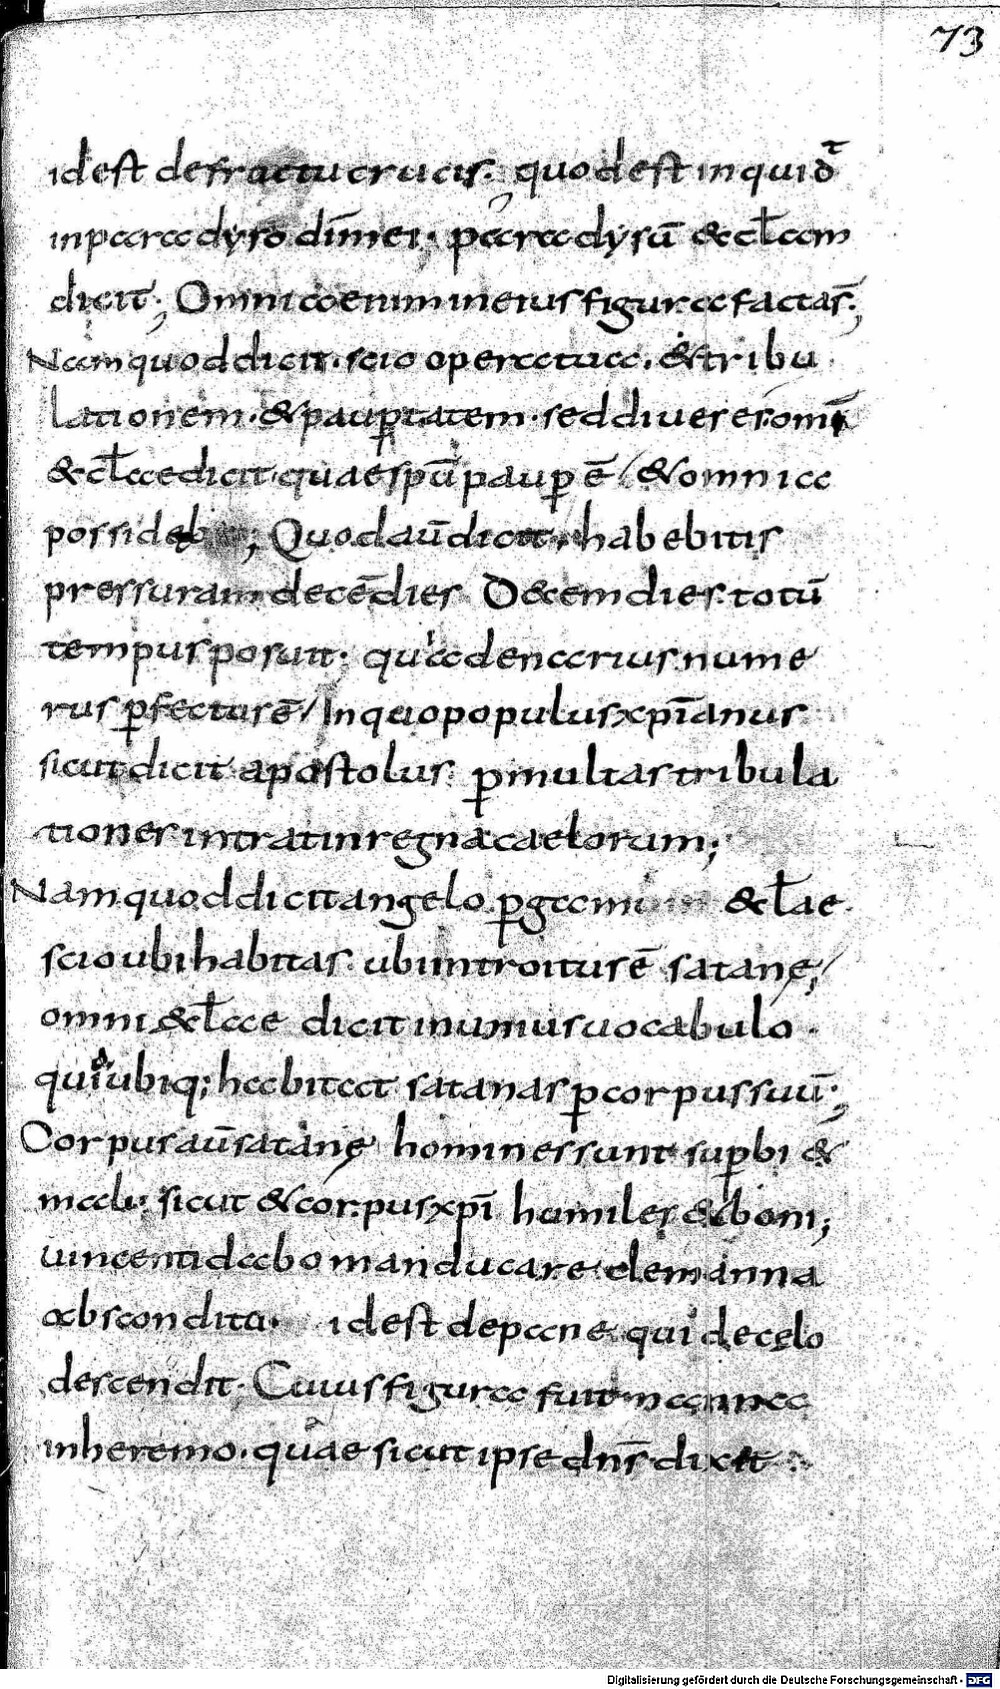 73
id est de fructu crucis; quod est inquid̄
in paradyso dī mei. paradysū & ecl̄am
dicit; Omnia enim in eius figura factas̄;
Nam quod dicit. scio opera tua. & tribu
lationem. & paup̄tatem. sed diues es. omī
& cl̄ae dicit. quae spū paup̄ ē / & omnia
possid&; Quod aū dicit. habebitis
pressuram decē dies. Decem dies. totū
tempus posuit. quia denarius nume
rus p̄fectus ē / In quo populus xp̄ianus
sicut dicit apostolus. p̄ multas tribula
tiones intrat in regna caelorum;
Nam quod dicit angelo p̄gami & cl̄ae.
scio ubi habitas. ubi introitus ē satanę;
omni & cl̄ae dicit in unius uocabulo.
quia ubiq; habitat satanas p̄ corpus suū;
Corpus aū satanę homines sunt sup̄bi &
mali. sicut & corpus xp̄i humiles & boni;
uincenti dabo manducare de manna
abscondita. id est de pane qui de cęlo
descendit. Cuius figura fuit manna
in heremo. quae sicut ipse dn̄s dixit
Digitalisierung gefördert durch die Deutsche Forschungsgemeinschaft - DFG